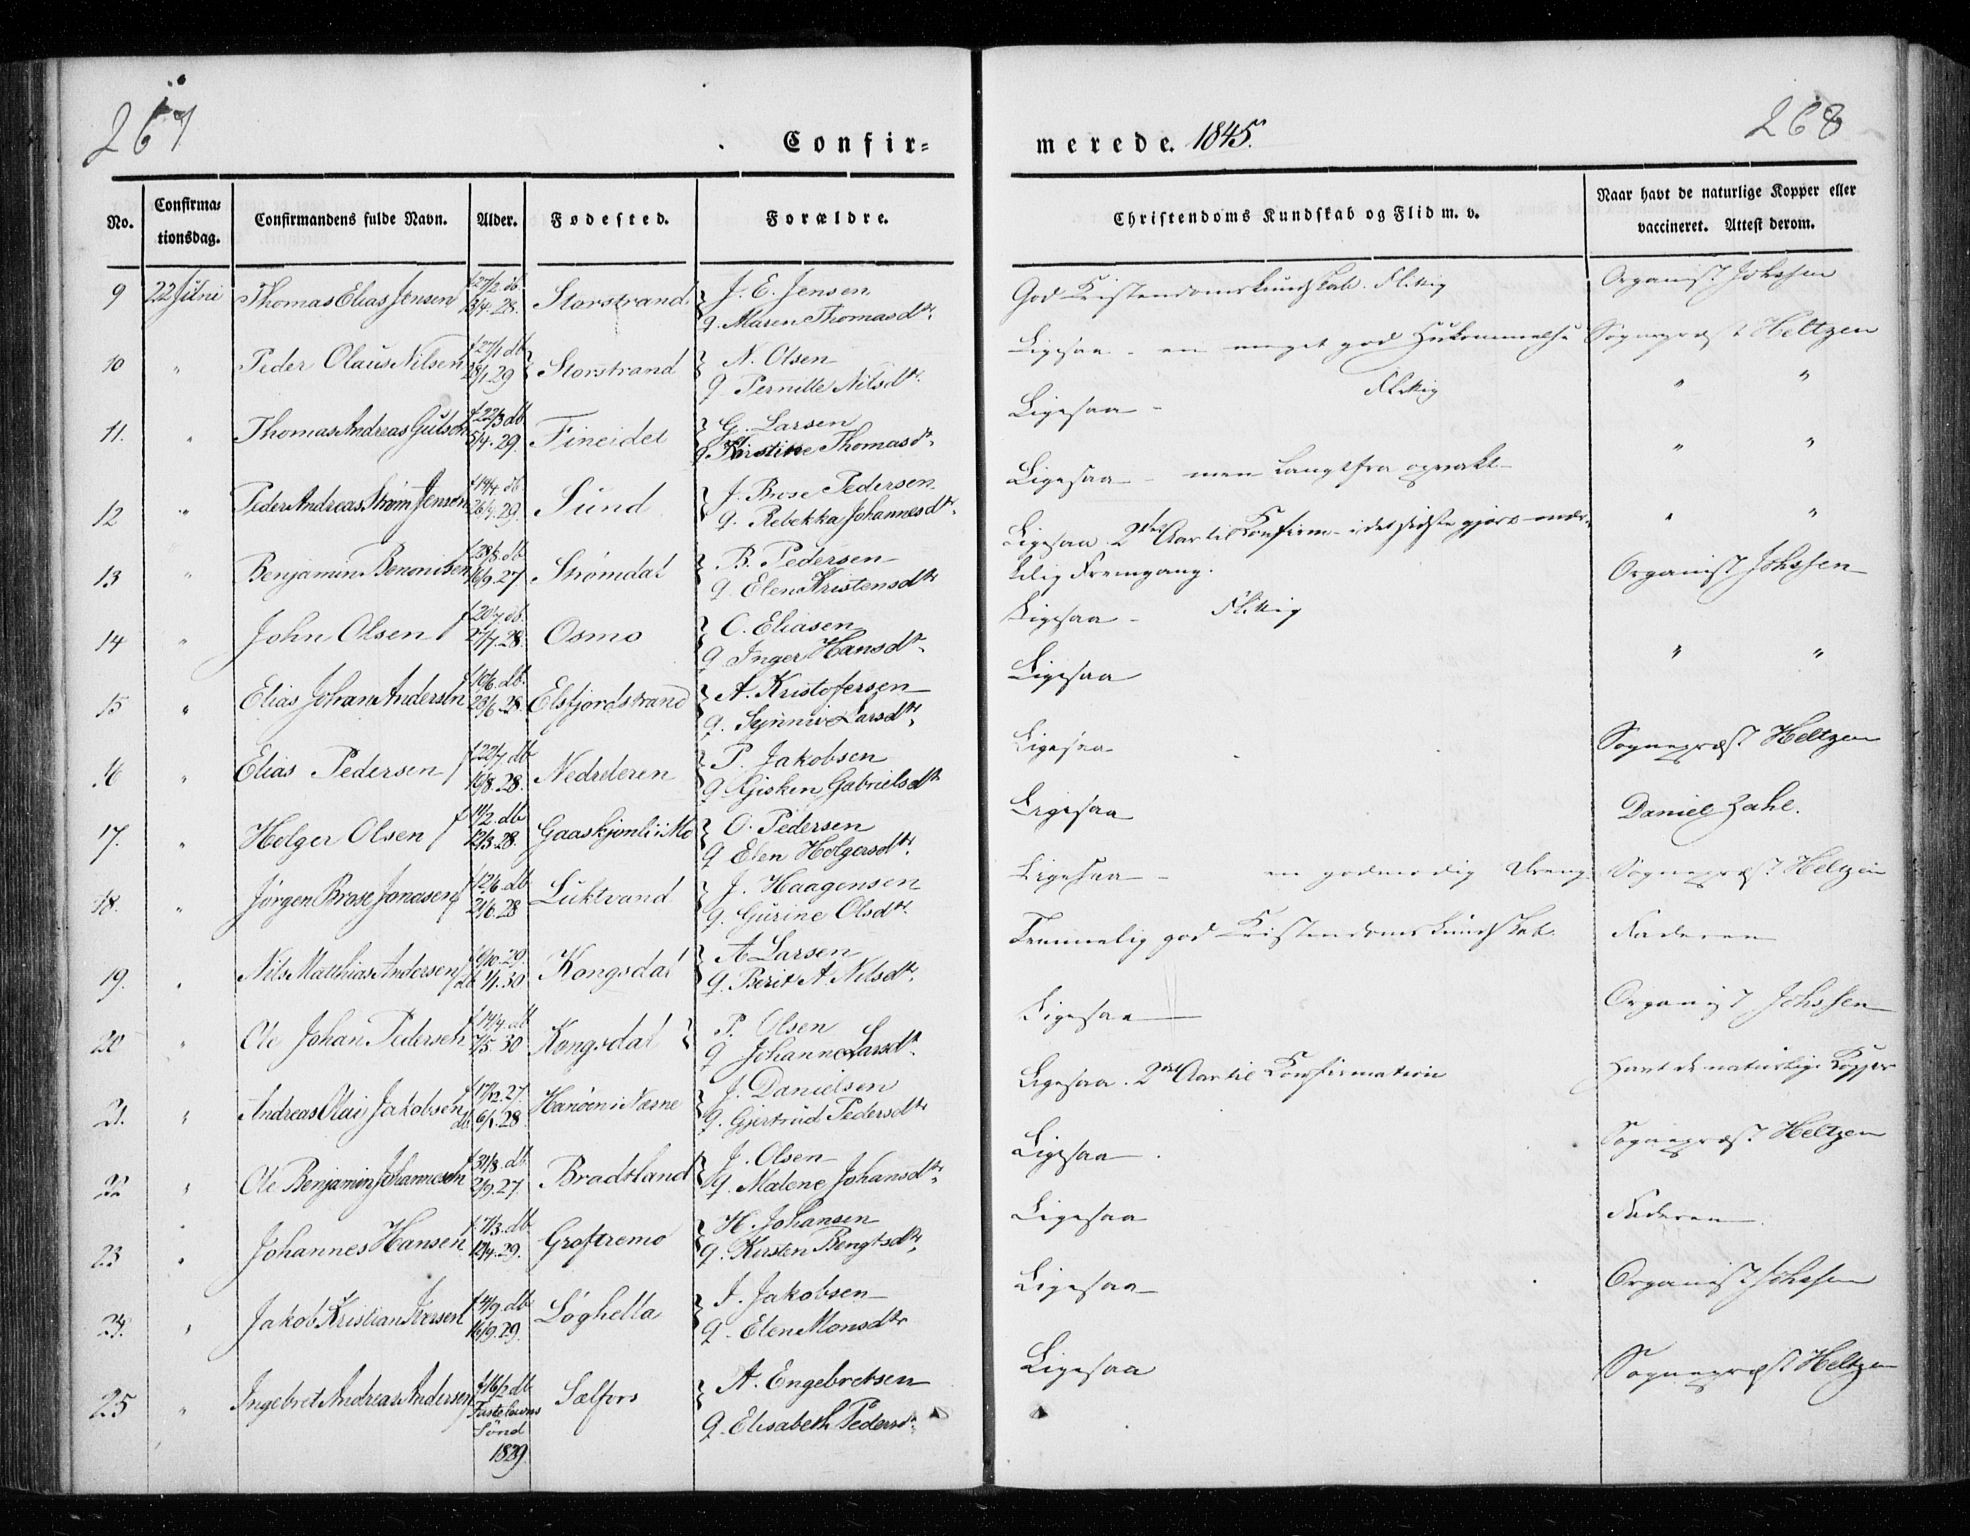 267
268
Confir=
merede. 1845.
No.
Confirma=
tionsdag.
Confirmandens fulde Navn.
Alder.
Fødested.
Forældre.
Christendoms Kundskab og Flid m. v.
Naar havt de naturlige Kopper eller
vaccineret. Attest derom.
9 22 Juni Thomas Elias Jensen f 27/2 db 13/4. 28. Storstrand } J. E. Jensen
q. Maren Thomasdtr.
God Kristendomskundskab. Flittig
Organist Johssen
10 " Peder Olaus Nilsen f 27/1 db 28/1 29 } Storstrand } N. Olsen
q Pernille Nilsdtr.
Ligesaa - en meget god Hukommelse
Sogneprest Heltzen
11. " Thomas Andreas Gulsen f 22/3 db 5/4. 29. Fineidet } G. Larsen
q Kirstine Thomasdr.
Ligesaa - Flittig
" "
12 " Peder Andreas Strøm Jensen f 14/4. db 26/4. 29. Sund } J. Brose Pedersen
q. Rebekka Johannesdtr.
Ligesaa - men langtfra oprakt
" "
13 " Benjamin Benonisen f 28/8. db 16/9. 27. Strømdal } B. Pedersen
q. Elen Kristensdtr
Ligesaa 2det Aar til Konfirm - i det sidste gjort mær-
kelig Fremgang.
" "
Organist Johssen
14 " John Olsen f 20/7. db. 27/7. 28. Osmo } O. Eliasen
q Inger Hansdtr.
Ligesaa - Flittig
15 " Elias Johan Andersen f 10/6. db. 23/6. 28. Elsfjordstrand } A. Kristofersen
q. Synnive Larsdtr.
Ligesaa
" "
16 " Elias Pedersen f 22/7 db 10/8. 28. Nedrleren } P. Jakobsen
q Gjisken Gabrielsdtr
Ligesaa
Sogneprest Heltzen
17. " Holger Olsen f 14/2. db 12/3. 28. Gaaskjønli i Mo } O. Pedersen
q Elen Holgersdtr.
Ligesaa
Daniel Zahl.
18. " Jørgen Brose Jonasen f 12/6. db 21/6. 28 Luktvand } J. Haagensen
q. Gurine Olsdtr.
Ligesaa - en godmodig Dreng
Sogneprest Heltzen
19. " Nils Matthias Andersen f 6/10. 29. db 1/1. 30 Kongsdal } A Larsen
q. Berit A. Nilsdtr.
Temmelig god Kristendomskundskab
Faderen
20 " Ole Johan Pedersen f 14/4. db 7/5. 30 Kongsdal } P. Olsen
q Johanna Larsdtr.
Ligesaa
Organist Johssen
21. " Andreas Olai Jakobsen f 17/12. 27. db 6/1. 28 Hanøen i Næsne } J. Danielsen
q. Gjertrud Pedersdtr
Ligesaa. 2det Aar til Konfirmation
Havt de naturlige Kopper
22 " Ole Benjamin Johannesen f 31/8. db 2/9. 27. Bradtland } J. Olsen
q. Malene Johansdtr.
Ligesaa
Sogneprest Heltzen
23 " Johannes Hansen f 7/3. db 12/4. 29. Groftremo } H. Johansen
q. Kirsten Bengtsdtr.
Ligesaa
Faderen
24. " Jakob Kristian Iversen f 4/9. db 16/9. 29. Løghella } I. Jakobsen
q. Elen Monsdtr
Ligesaa
Organist Johssen
25 " Ingebret Andreas Andersen f 16/2 db Fastelavns Sønd 1829. Sælfors } A. Engebretsen
q. Elisabeth Pedersdtr.
Ligesaa
Sogneprest Heltzen